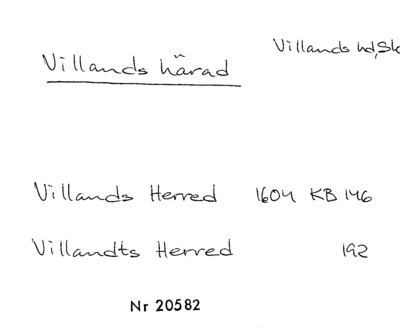 Villands hd, Sk
Villands härad
Villands Herred 1604 KB 146
Villandts Herred 192
Nr 20582